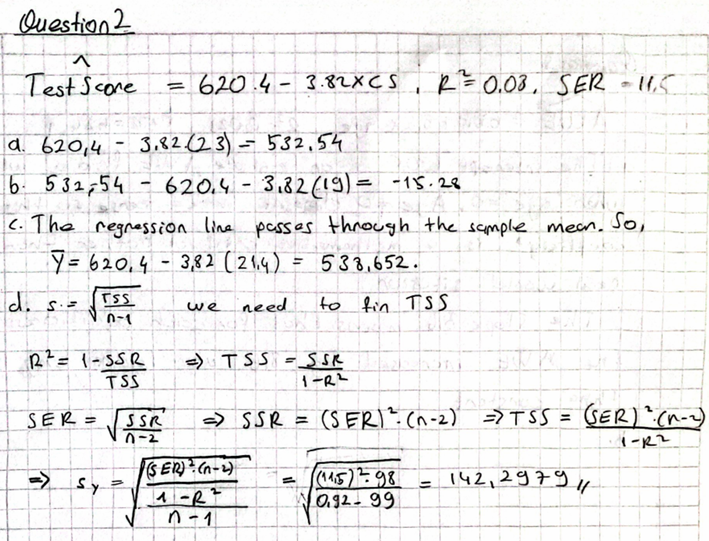 Question 2
^
Test Score = 620.4 - 3.82 x CS, R² = 0.08, SER - 11.5
a. 620,4 - 3,82.(23) = 532.54
b. 532,54 - 620.4 - 3,82(19) = -15.28
c. The regression line passes through the sample mean. So,
Ȳ = 620,4 - 3,82 (21,4) = 538,652.
d. s. = √(TSS / n-1) we need to fin TSS
R² = 1 - SSR / TSS ⇒ TSS = SSR / 1-R²
SER = √(SSR / n-2) ⇒ SSR = (SER)².(n-2) ⇒ TSS = (SER)².(n-2) / 1-R²
⇒ sY = √(((SER)².(n-2) / 1-R²) / n-1) = √((11,5)².98 / 0.92-99) = 142,2979 //